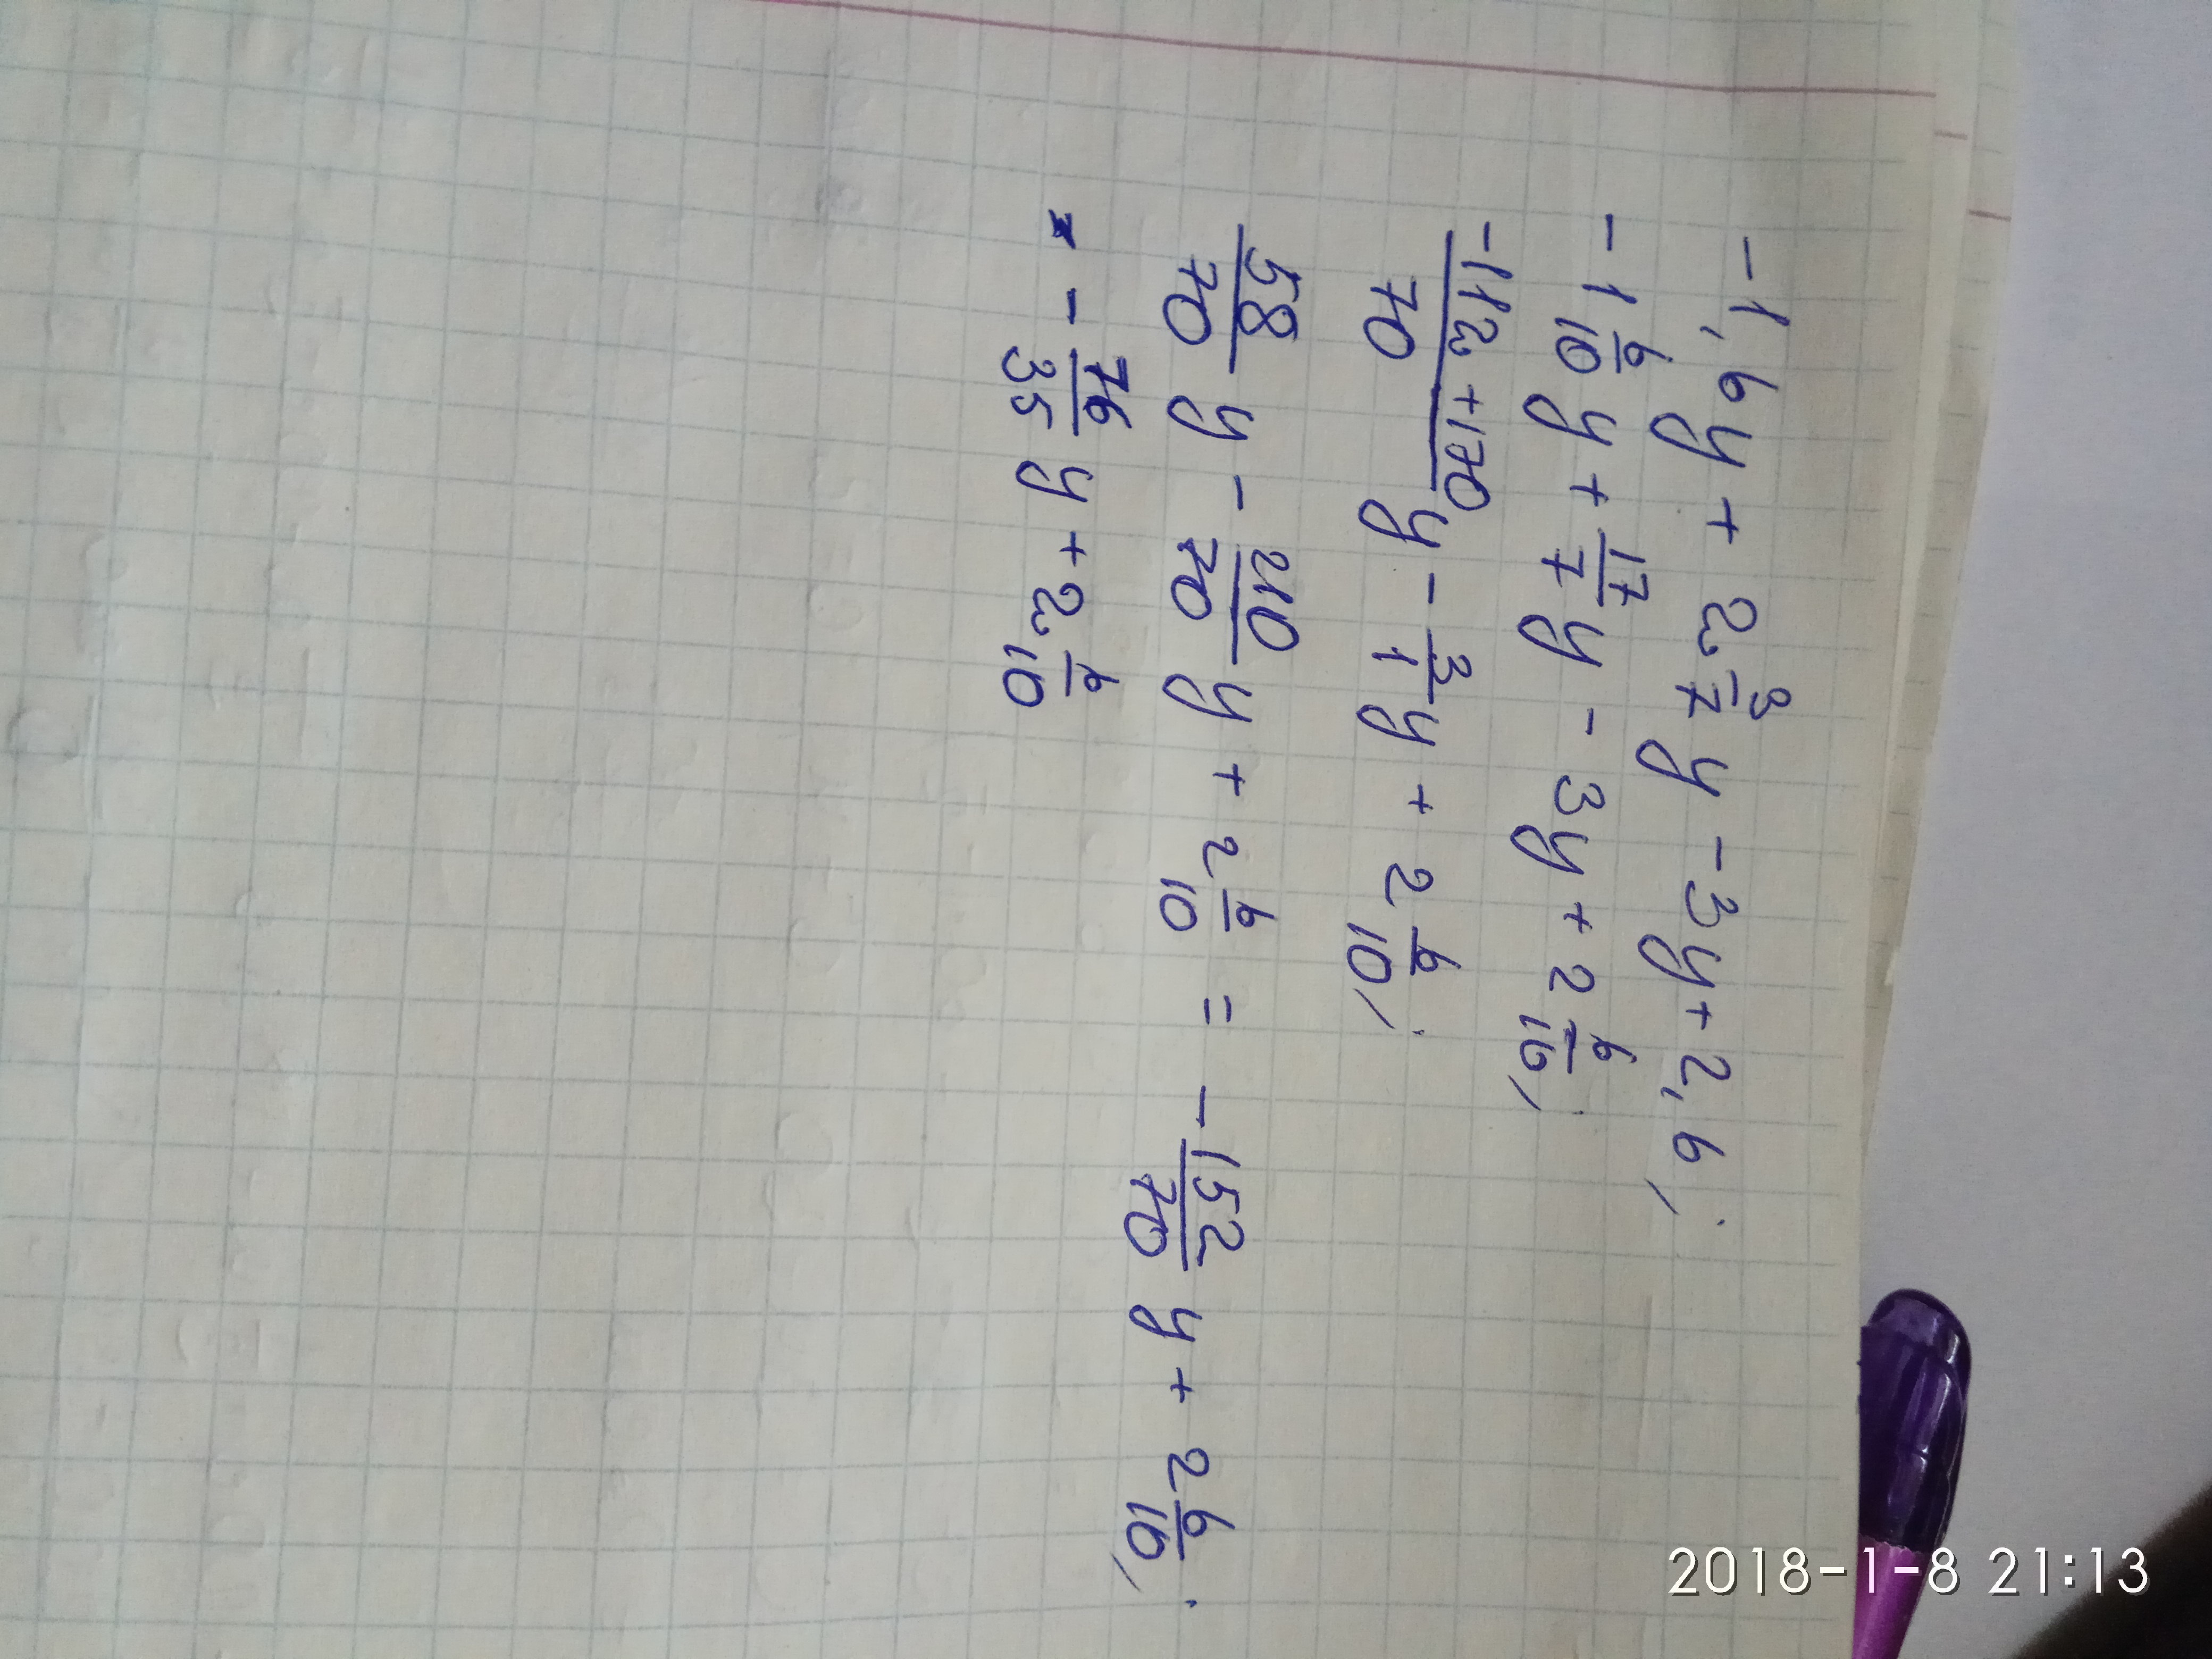 -1,6y + 2 3/7 y - 3y + 2,6;
-1 6/10 y + 17/7 y - 3y + 2 6/10;
(-112 + 170)/70 y - 3/1 y + 2 6/10;
58/70 y - 210/70 y + 2 6/10 = -152/70 y + 2 6/10;
- 76/35 y + 2 6/10
2018-1-8 21:13